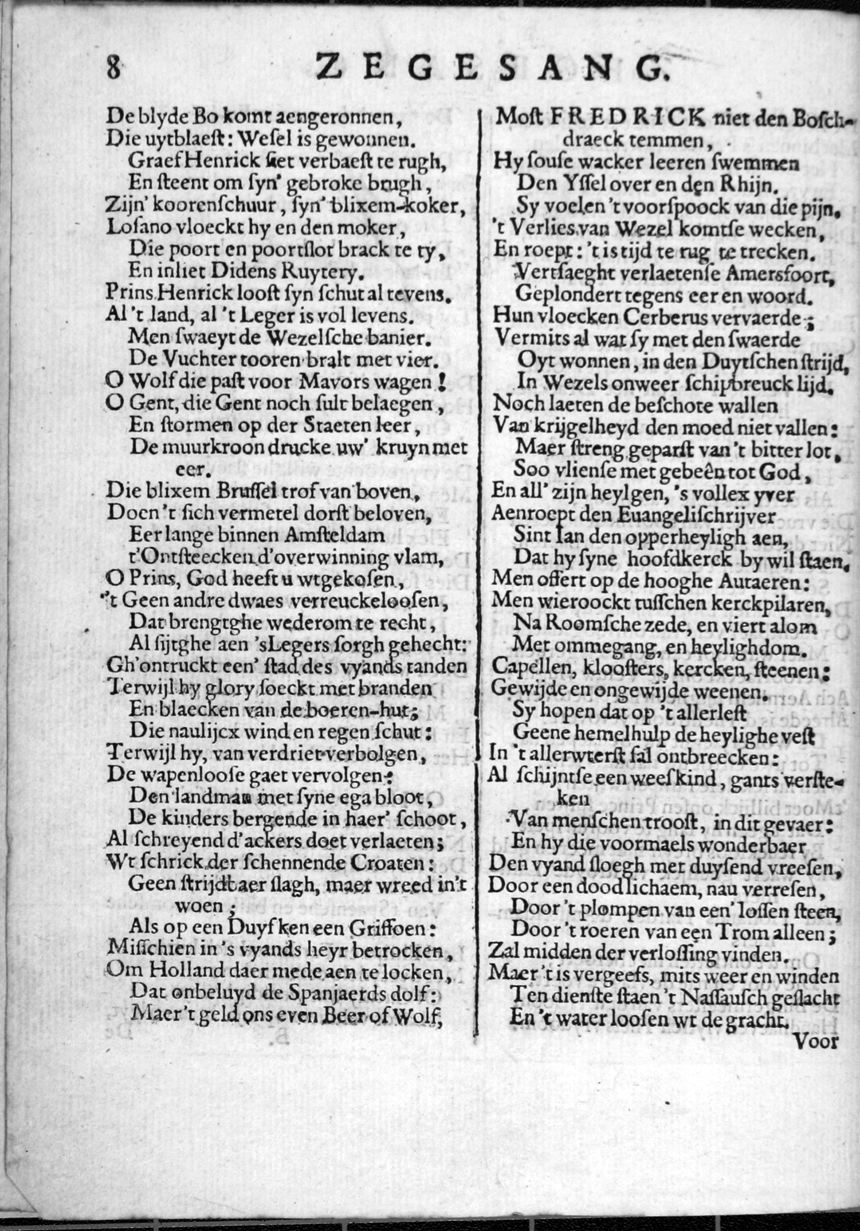 8 ZEGESANG.
De blyde Bo komt aengeronnen,
Die uytblaeſt: Weſel is gewonnen.
Graef Henrick ſiet verbaeſt te rugh,
En ſteent om ſyn' gebroke brugh,
Zijn' koorenſchuur, ſyn' blixem-koker,
Loſano vloeckt hy en den moker,
Die poort en poortſlot brack te ty,
En inliet Didens Ruytery.
Prins Henrick looſt ſyn ſchut al tevens.
Al 't land, al 't Leger is vol levens.
Men ſwaeyt de Wezelſche banier.
De Vuchter tooren bralt met vier.
O Wolf die paſt voor Mavors wagen!
O Gent, die Gent noch ſult belaegen,
En ſtormen op der Staeten leer,
De muurkroon drucke uw' kruyn met
eer.
Die blixem Bruſſel trof van boven,
Doen 't ſich vermetel dorſt beloven,
Eer lange binnen Amſteldam
t'Ontſteecken d'overwinning vlam,
O Prins, God heeft u wtgekoſen,
't Geen andre dwaes verreuckelooſen,
Dat brengtghe wederom te recht,
Al ſijtghe aen 'sLegers ſorgh gehecht:
Gh'ontruckt een' ſtad des vyands tanden
Terwijl hy glory ſoeckt met branden
En blaecken van de boeren-hut;
Die naulijcx wind en regen ſchut:
Terwijl hy, van verdriet verbolgen,
De wapenlooſe gaet vervolgen:
Den landman met ſyne ega bloot,
De kinders bergende in haer' ſchoot,
Al ſchreyend d'ackers doet verlaeten;
Wt ſchrick der ſchennende Croaten:
Geen ſtrijdtbaer ſlagh, maer wreed in't
woen;
Als op een Duyfken een Griffoen:
Miſſchien in 's vyands heyr betrocken,
Om Holland daer mede aen te locken,
Dat onbeluyd de Spanjaerds dolf:
Maer 't geld ons even Beer of Wolf,
Moſt FREDRICK niet den Boſch-
draeck temmen,
Hy ſouſe wacker leeren ſwemmen
Den Yſſel over en den Rhijn.
Sy voelen 't voorſpoock van die pijn,
't Verlies van Wezel komtſe wecken,
En roept: 't is tijd te rug te trecken.
Vertſaeght verlaetenſe Amersfoort,
Geplondert tegens eer en woord.
Hun vloecken Cerberus vervaerde;
Vermits al wat ſy met den ſwaerde
Oyt wonnen, in den Duytſchen ſtrijd,
In Wezels onweer ſchipbreuck lijd.
Noch laeten de beſchote wallen
Van krijgelheyd den moed niet vallen:
Maer ſtreng geparſt van 't bitter lot,
Soo vlienſe met gebeên tot God,
En all' zijn heylgen, 's vollex yver
Aenroept den Euangeliſchrijver
Sint Ian den opperheyligh aen,
Dat hy ſyne hoofdkerck by wil ſtaen,
Men offert op de hooghe Autaeren:
Men wieroockt tuſſchen kerckpilaren,
Na Roomſche zede, en viert alom
Met ommegang, en heylighdom.
Capellen, klooſters, kercken, ſteenen:
Gewijde en ongewijde weenen.
Sy hopen dat op 't allerleſt
Geene hemelhulp de heylighe veſt
In 't allerwterſt ſal ontbreecken:
Al ſchijntſe een weeſkind, gants verſte-
ken
Van menſchen trooſt, in dit gevaer:
En hy die voormaels wonderbaer
Den vyand ſloegh met duyſend vreeſen,
Door een dood lichaem, nau verreſen,
Door 't plompen van een' loſſen ſteen,
Door 't roeren van een Trom alleen;
Zal midden der verloſſing vinden.
Maer 't is vergeefs, mits weer en winden
Ten dienſte ſtaen 't Naſſauſch geſlacht
En 't water looſen wt de gracht.
Voor